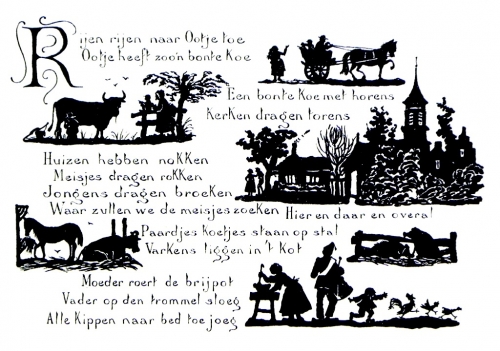 Rijen rijen naar Ootje toe
Ootje heeft zoo'n bonte Koe
Een bonte Koe met horens
Kerken dragen torens
Huizen hebben nokken
Meisjes dragen rokken
Jongens dragen broeken
Waar zullen we de meisjes zoeken
Hier en daar en overal
Paardjes koetjes staan op stal
Varkens liggen in 't Kot
Moeder roert de brijpot
Vader op den trommel sloeg
Alle Kippen naar bed toe joeg